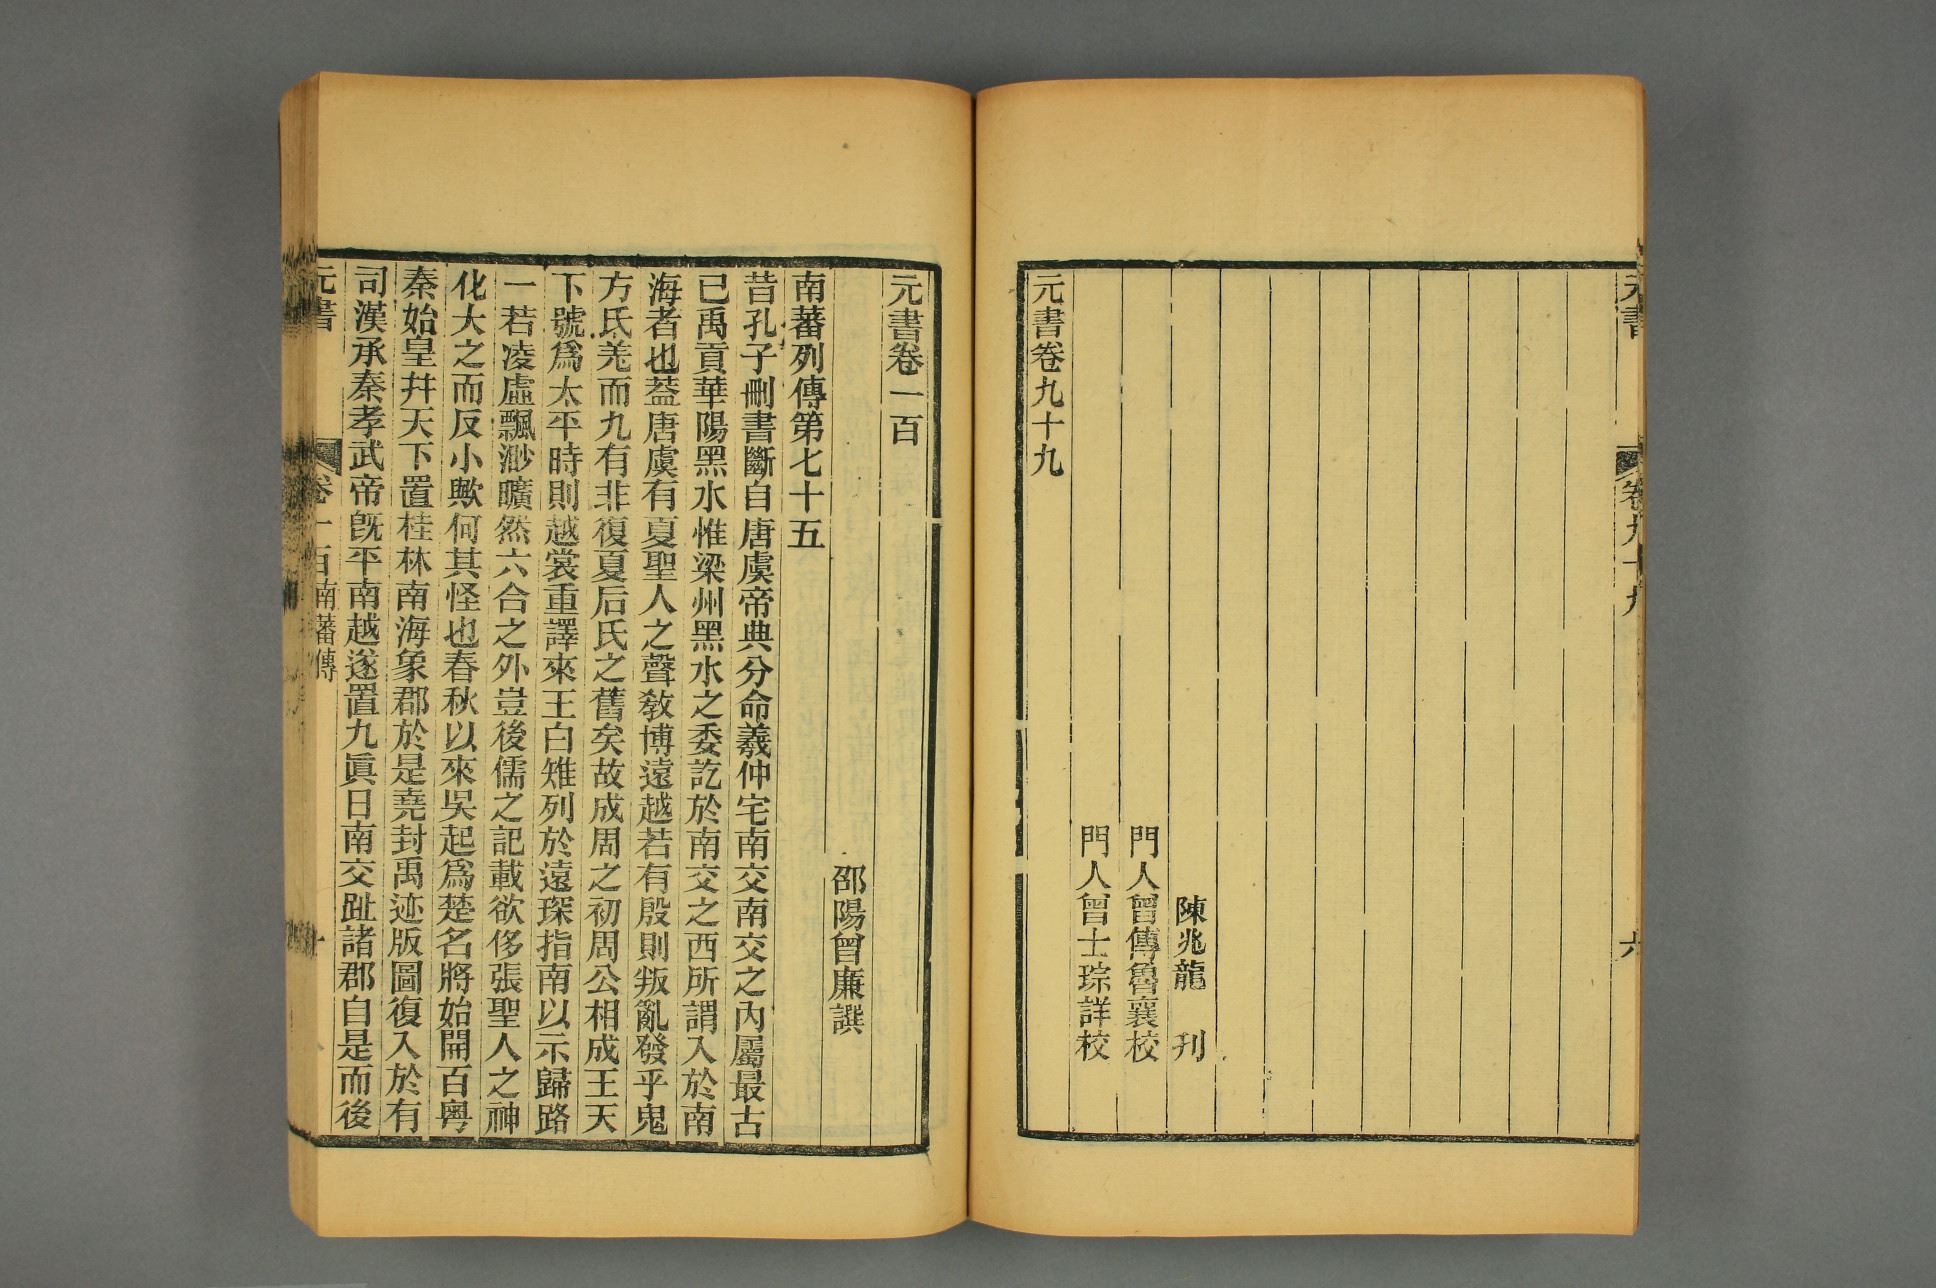 元書
卷九十九
六
陳兆龍 刊
門人曾傳魯襄校
門人曾士琮詳校
元書卷九十九
元書卷一百
邵陽曾廉譔
南蕃列傳第七十五
昔孔子刪書斷自唐虞帝典分命羲仲宅南交南交之內屬最古
已禹貢華陽黑水惟梁州黑水之委訖於南交之西所謂入於南
海者也葢唐虞有夏聖人之聲敎博遠越若有殷則叛亂發乎鬼
方氐羌而九有非復夏后氏之舊矣故成周之初周公相成王天
下號爲太平時則越裳重譯來王白雉列於遠琛指南以示歸路
一若凌虛飄渺曠然六合之外豈後儒之記載欲侈張聖人之神
化大之而反小歟何其怪也春秋以來吳起爲楚名將始開百粵
秦始皇幷天下置桂林南海象郡於是堯封禹迹版圖復入於有
司漢承秦孝武帝旣平南越遂置九眞日南交趾諸郡自是而後
元書
卷一百南蕃傳
一